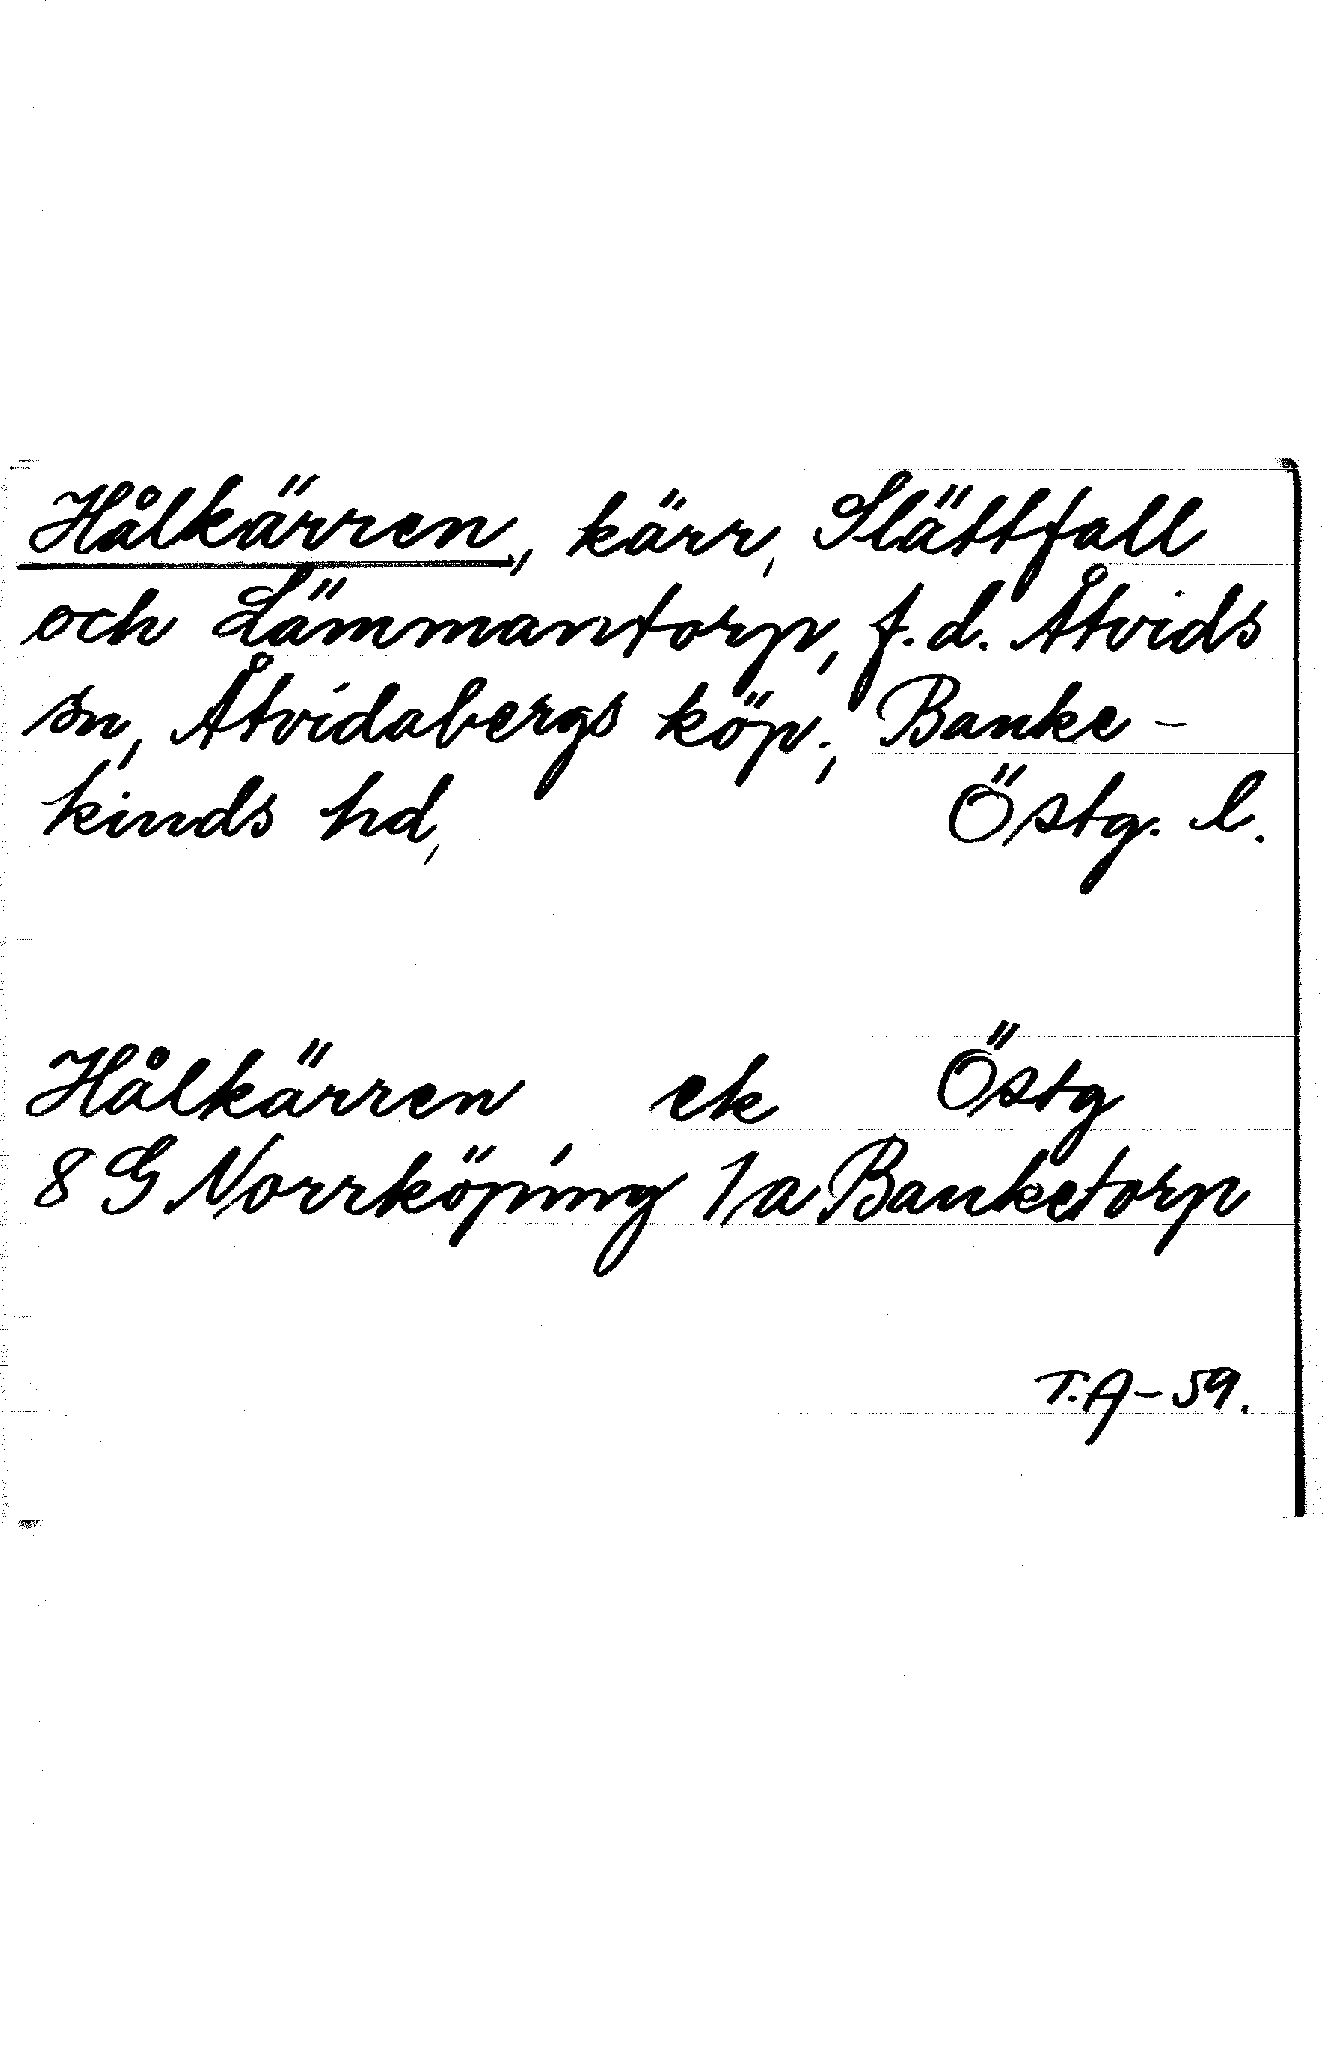 Hålkärren, kärr, Slättfall
och Lämmantorp, f.d. Åtvids
sn, Åtvidabergs köp., Banke-
kinds hd, Östg. l.
Hålkärren ek Östg
8 G Norrköping 1a Banketorp
T.A-59.